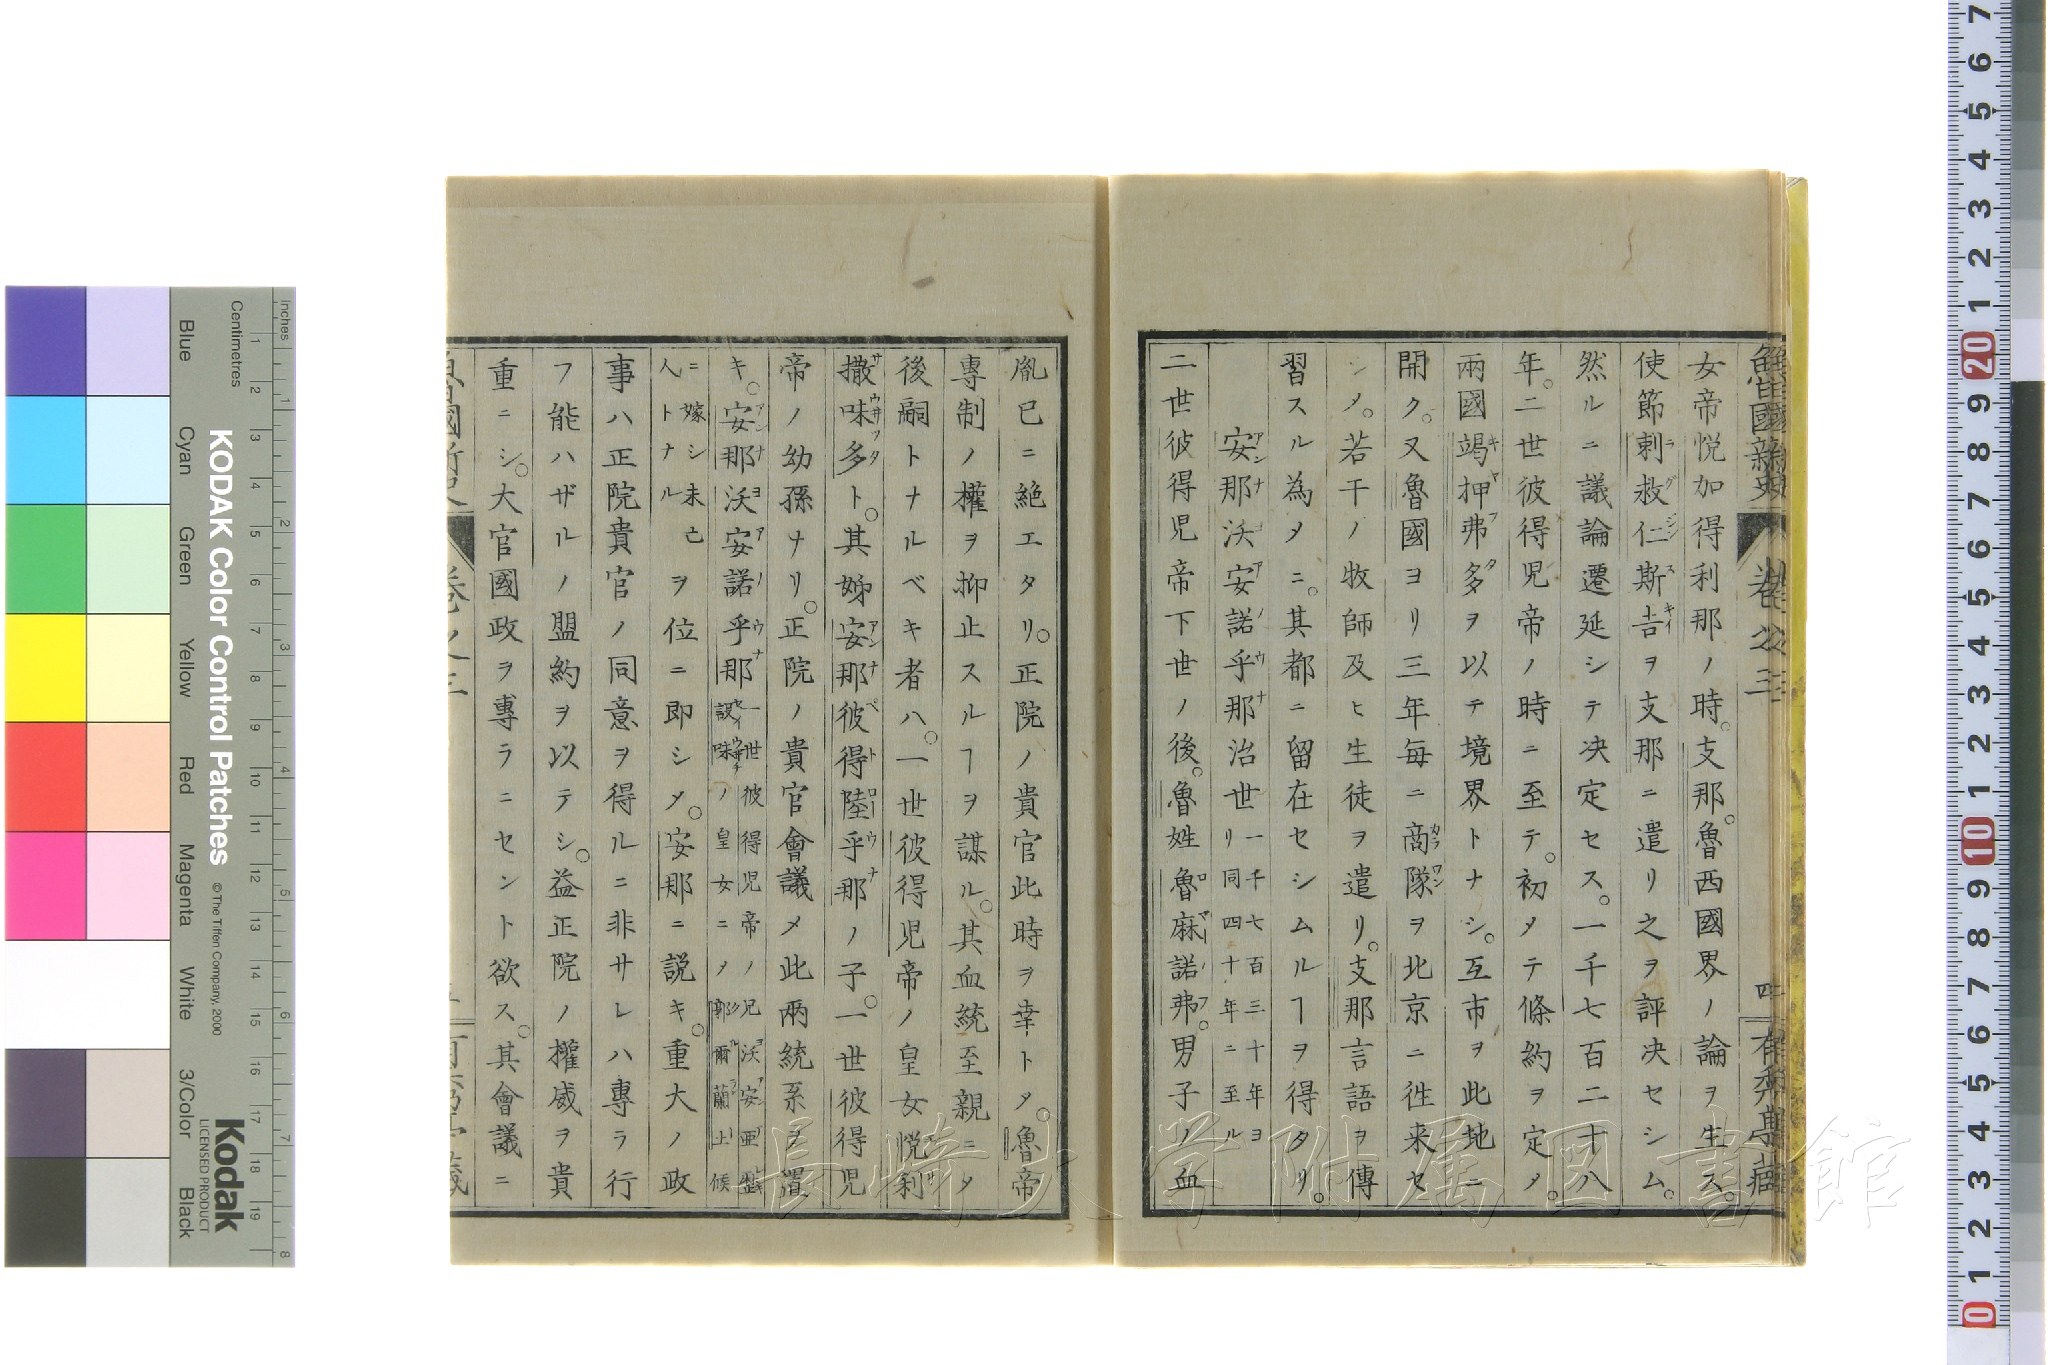 魯國新史 卷之三 四 有秀亭藏
女帝悦加得利那ノ時。支那。魯西國界ノ論ヲ生ス。
使節剌救仁斯𠮷ヲ支那ニ遣リ之ヲ評决セシム。
然ルニ議論遷延シテ决定セス。一千七百二十八
年。二世彼得児帝ノ時ニ至テ。初メテ條約ヲ定メ。
兩國竭押弗多ヲ以テ境界トナシ。互市ヲ此地ニ
開ク。又魯國ヨリ三年毎ニ啇隊ヲ北京ニ徃来セ
シメ。若干ノ牧師及ヒ生徒ヲ遣リ。支那言語ヲ傳
習スル為メニ。其都ニ留在セシムルヿヲ得タリ。
安那沃安諾乎那治世一千七百三十年ヨリ同四十年ニ至ル
二世彼得児帝下世ノ後。魯姓魯麻諾弗。男子ノ血
胤已ニ絶エタリ。正院ノ貴官此時ヲ幸トメ。魯帝
專制ノ權ヲ抑止スルヿヲ謀ル。其血統至親ニメ
後嗣トナルベキ者ハ。一世彼得児帝ノ皇女悦利
撒味多ト。其姊安那彼得陸乎那ノ子。一世彼得児
帝ノ幼孫ナリ。正院ノ貴官會議メ此兩統系ヲ置
キ。安那沃安諾乎那一世彼得児帝ノ兄沃安亜瑟誤味ノ皇女ニノ郭爾蘭土候
ニ嫁シ未亡人トナルヲ位ニ即シメ。安那ニ説キ。重大ノ政
事ハ正院貴官ノ同意ヲ得ルニ非サレハ專ラ行
フ能ハザルノ盟約ヲ以テシ。益正院ノ權威ヲ貴
重ニシ。大官國政ヲ專ラニセント欲ス。其會議ニ
長崎大学附属図書館
KODAK Color Control Patches
© The Tiffen Company, 2000
Kodak
LICENSED PRODUCT
Centimetres
Inches
Blue
Cyan
Green
Yellow
Red
Magenta
White
3/Color
Black